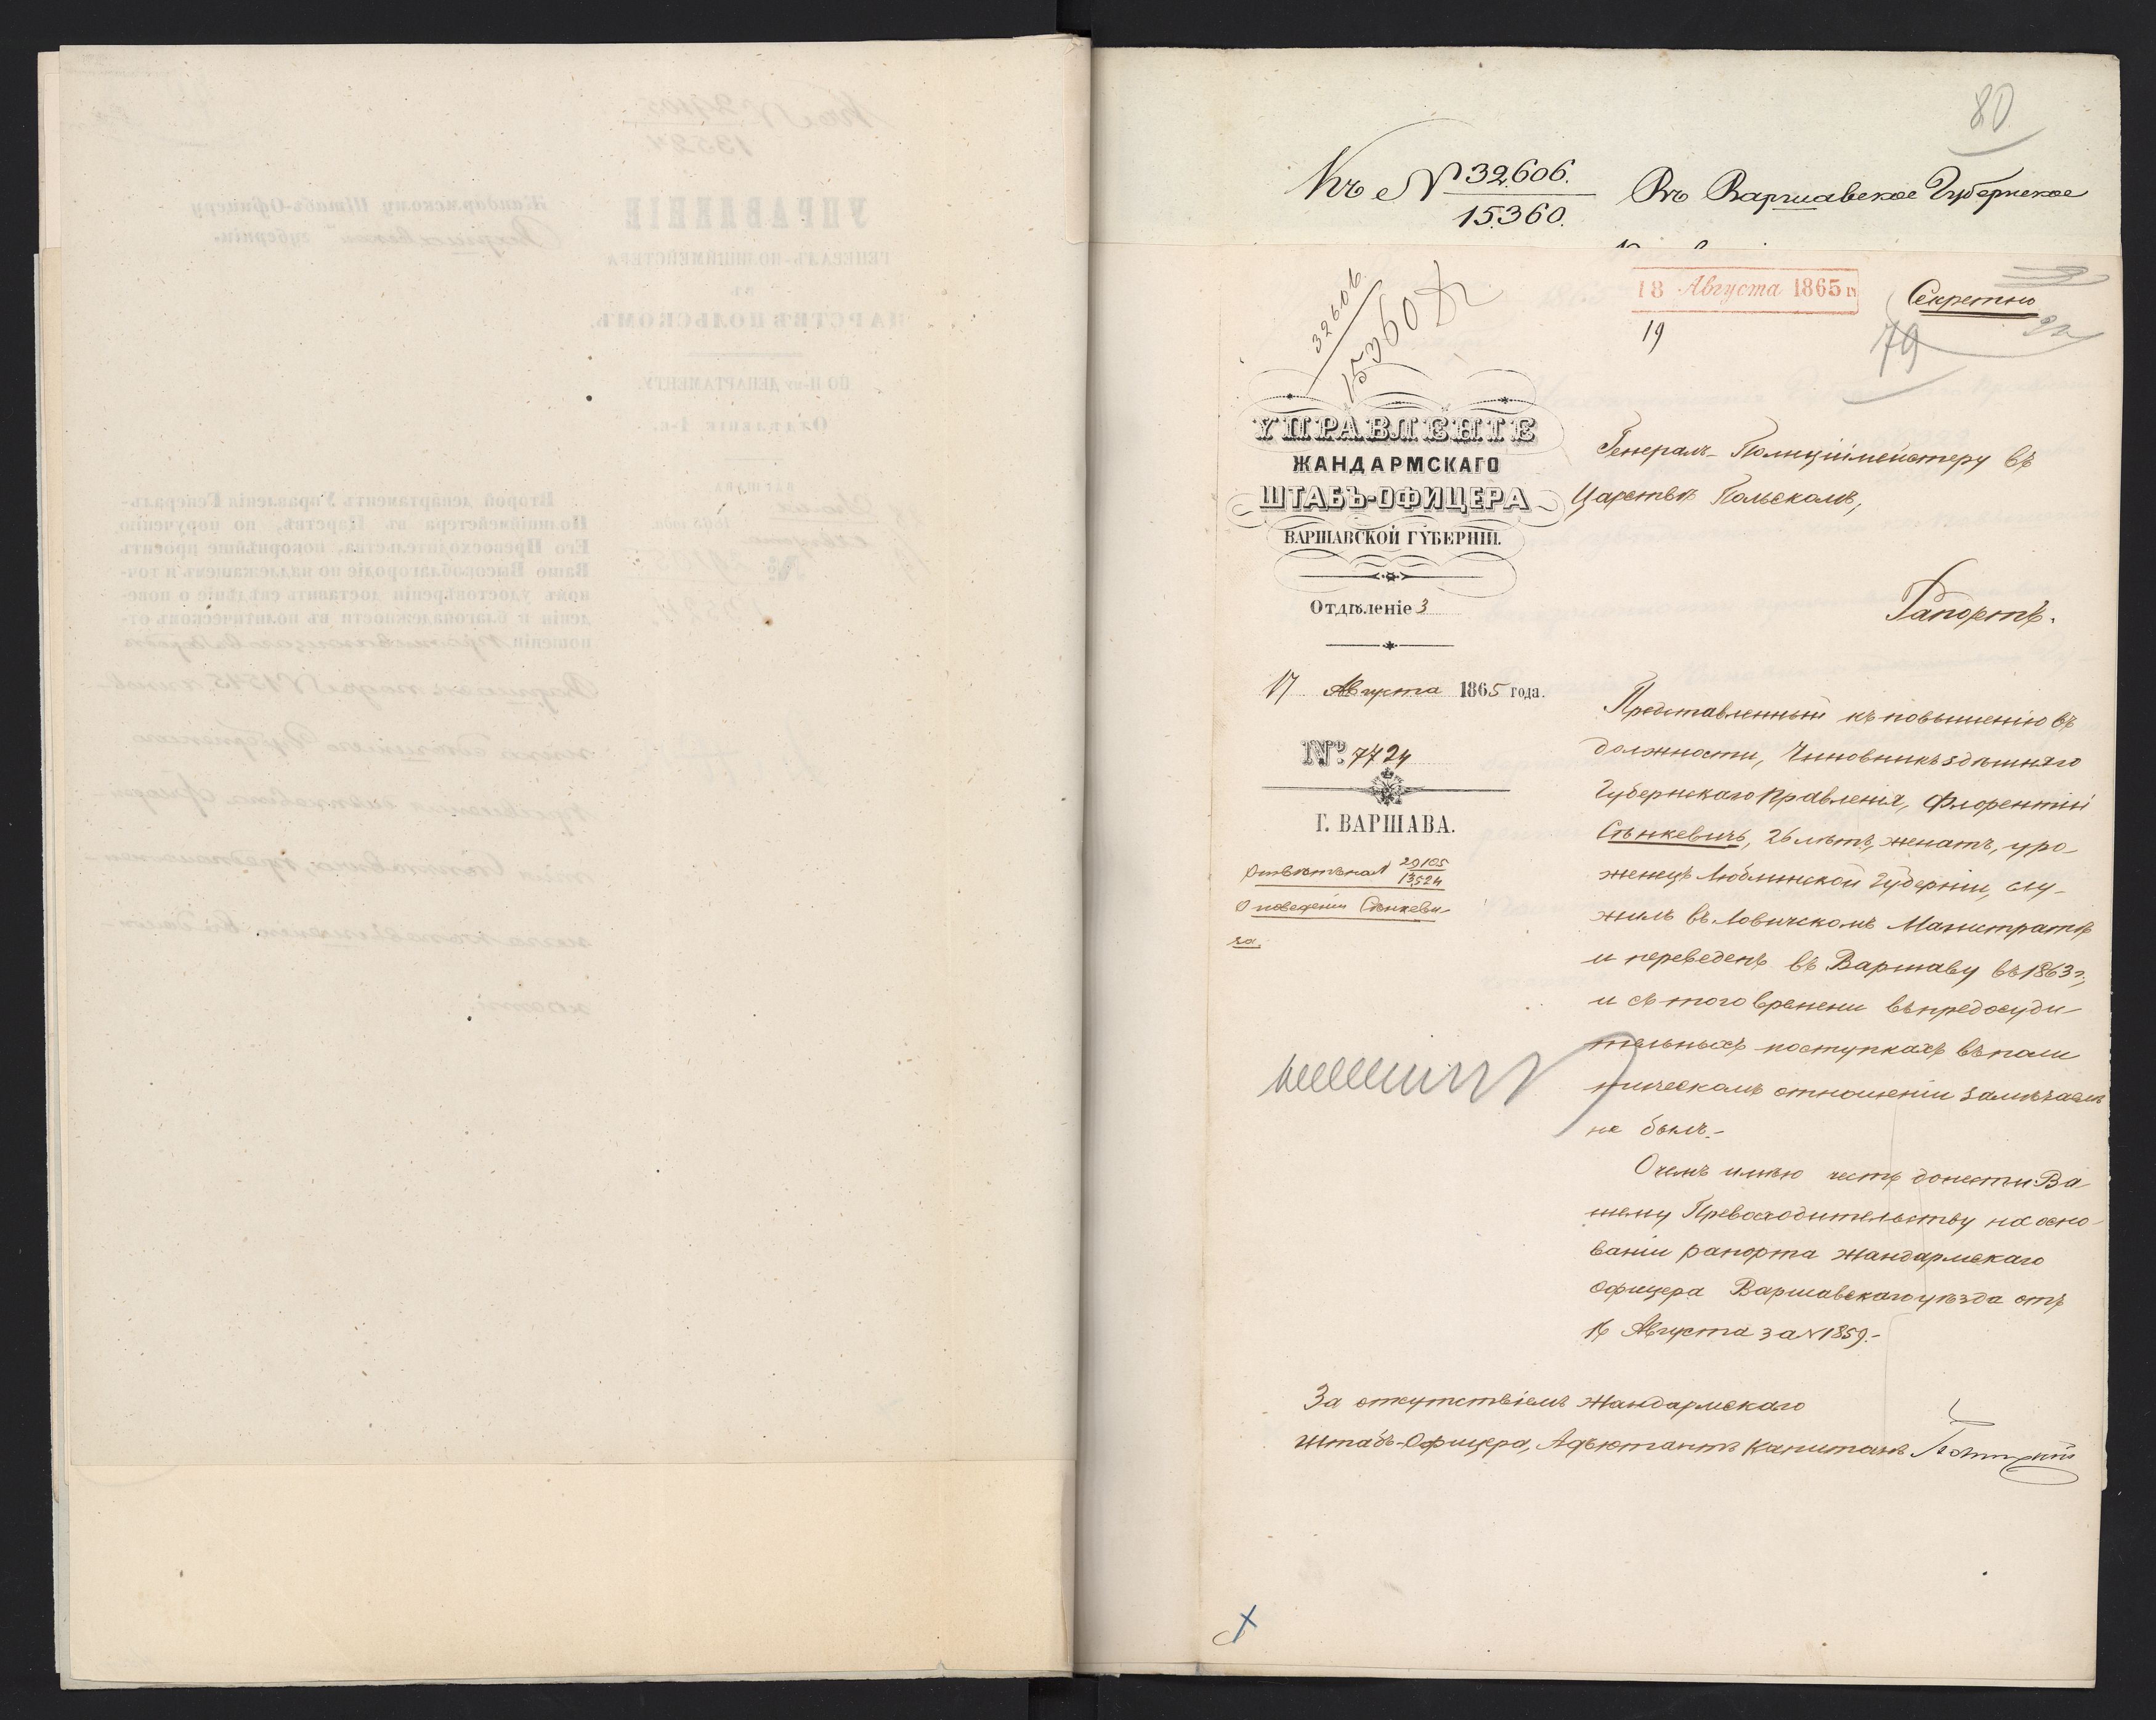 80
Къ № 32606.
15360.
Въ Варшавское Губернское
32606
15360
18 Августа 1865 г.
19
Секретно
79
УПРАВЛЕНІЕ
ЖАНДАРМСКАГО
ШТАБЪ-ОФИЦЕРА
ВАРШАВСКОЙ ГУБЕРНІИ.
Отдѣленіе 3
17 Августа 1865 года.
№ 7724
Г. ВАРШАВА.
Отвѣтъ на № 29105
13524
О поведеніи Стънкеви-
ча.
Генералъ-Полиціймейстеру въ
Царствѣ Польскомъ,
Рапортъ.
Представленный къ повышенію въ
должности, Чиновникъ здѣшняго
Губернскаго Правленія, Флорентій
Стънкевичъ, 26 лѣтъ, женатъ, уро-
женецъ Люблинской Губерніи, слу-
жилъ въ Ловичскомъ Магистратѣ
и переведенъ въ Варшаву въ 1863 г,
и съ того времени въ предосуди-
тельныхъ поступкахъ въ поли
тическомъ отношеніи замѣчаемъ
не былъ.-
О чемъ имѣю честь донести Ва
шему Превосходительству на осно-
ваніи рапорта жандармскаго
Офицера Варшавскаго уѣзда отъ
16 Августа за № 1859.-
За отсутствіемъ Жандармскаго
Штабъ-Офицера, Адъютантъ Капитанъ
УПРАВЛЕНІЕ
ГЕНЕРАЛЪ-ПОЛИЦІЙМЕЙСТЕРА
ВЪ
ЦАРСТВѢ ПОЛЬСКОМЪ.
ПО II-му ДЕПАРТАМЕНТУ.
Отдѣленіе 1-е.
ВАРШАВА
Жандармскому Штабъ-Офицеру
Варшавской губерніи.
Второй департаментъ Управленія Генералъ-
Полиціймейстера въ Царствѣ, по порученію
Его Превосходительства, покорнѣйше проситъ
Ваше Высокоблагородіе по надлежащемъ и точ-
номъ удостовѣреніи доставить свѣдѣніе о пове-
деніи и благонадежности въ политическомъ от-
ношеніи